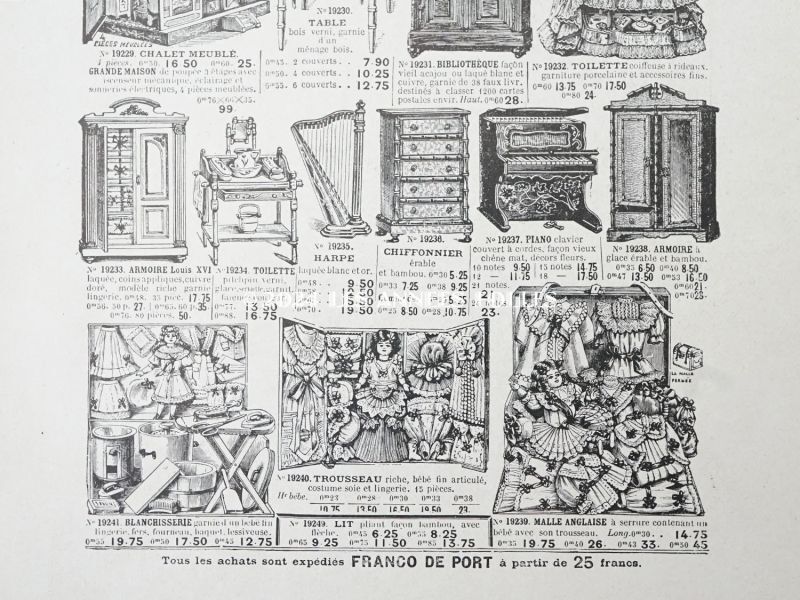 4
PIÈCES MEUBLÉES
No 19229. CHALET MEUBLÉ.
4 pièces. 0m50. 16 50 0m60. 25.
GRANDE MAISON de poupée à étages avec
ascenseur mécanique, éclairage et
sonneries électriques, 4 pièces meublées.
99.
No 19230.
TABLE
bois verni, garnie
d'un
ménage bois.
0m45. 2 couverts . . 7.90
0m50. 4 couverts . . 10.25
0m55. 6 couverts . . 12.75
No 19231. BIBLIOTHÈQUE façon
vieil acajou ou laqué blanc et
cuivre, garnie de 38 faux livr.
destinés à classer 1200 cartes
postales envir. Haut. 0m60 28.
No 19232. TOILETTE coiffeuse à rideaux,
garniture porcelaine et accessoires fins.
0m60 13.75 0m70 17.50
0m80 24.
No 19233. ARMOIRE Louis XVI
laquée, coins appliques, cuivre
doré, modèle riche garnie
lingerie. 0m48. 35 piec. 17.75
0m76. 80 pièces. 50.
No 19234. TOILETTE
pitchpin verni,
13 50
0m88. 16.75
No 19235.
HARPE
laquée blanc et or.
0m48 . . 9 50
No 19236.
CHIFFONNIER
érable
et bambou. 0m30 5.25
0m33 7.25 0m38 9.25
0m25 8.50 0m28 10.75
No 19237. PIANO clavier
couvert à cordes, façon vieux
chêne mat, décors fleurs.
10 notes 9.50 15 notes 14.75
12 — 11.75 18 — 17.50
23.
No 19238. ARMOIRE à
glace érable et bambou.
0m35 6.50 0m40 8.50
0m47 13.50 0m53 16.50
0m60 21.
0m70 28.
LA MALLE
FERMÉE
No 19240. TROUSSEAU riche, bébé fin articulé,
costume soie et lingerie. 15 pièces.
Hr bébé. 0m23 0m28 0m30 0m33 0m38
10.75 13.50 16.50 19.50 23.
No 19241. BLANCHISSERIE garnie d'un bébé fin
lingerie, fers, fourneau, baquet, lessiveuse.
0m55 19.75 0m50 17.50 0m45 12.75
No 19249. LIT pliant façon bambou, avec
flèche. 0m45 6.25 0m55 8.25
0m65 9.25 0m75 11.50 0m85 13.75
No 19239. MALLE ANGLAISE à serrure contenant un
bébé avec son trousseau. Long. 0m30. . 14.75
0m35 19.75 0m40 26. 0m43 33. 0m50 45
Tous les achats sont expédiés FRANCO DE PORT à partir de 25 francs.